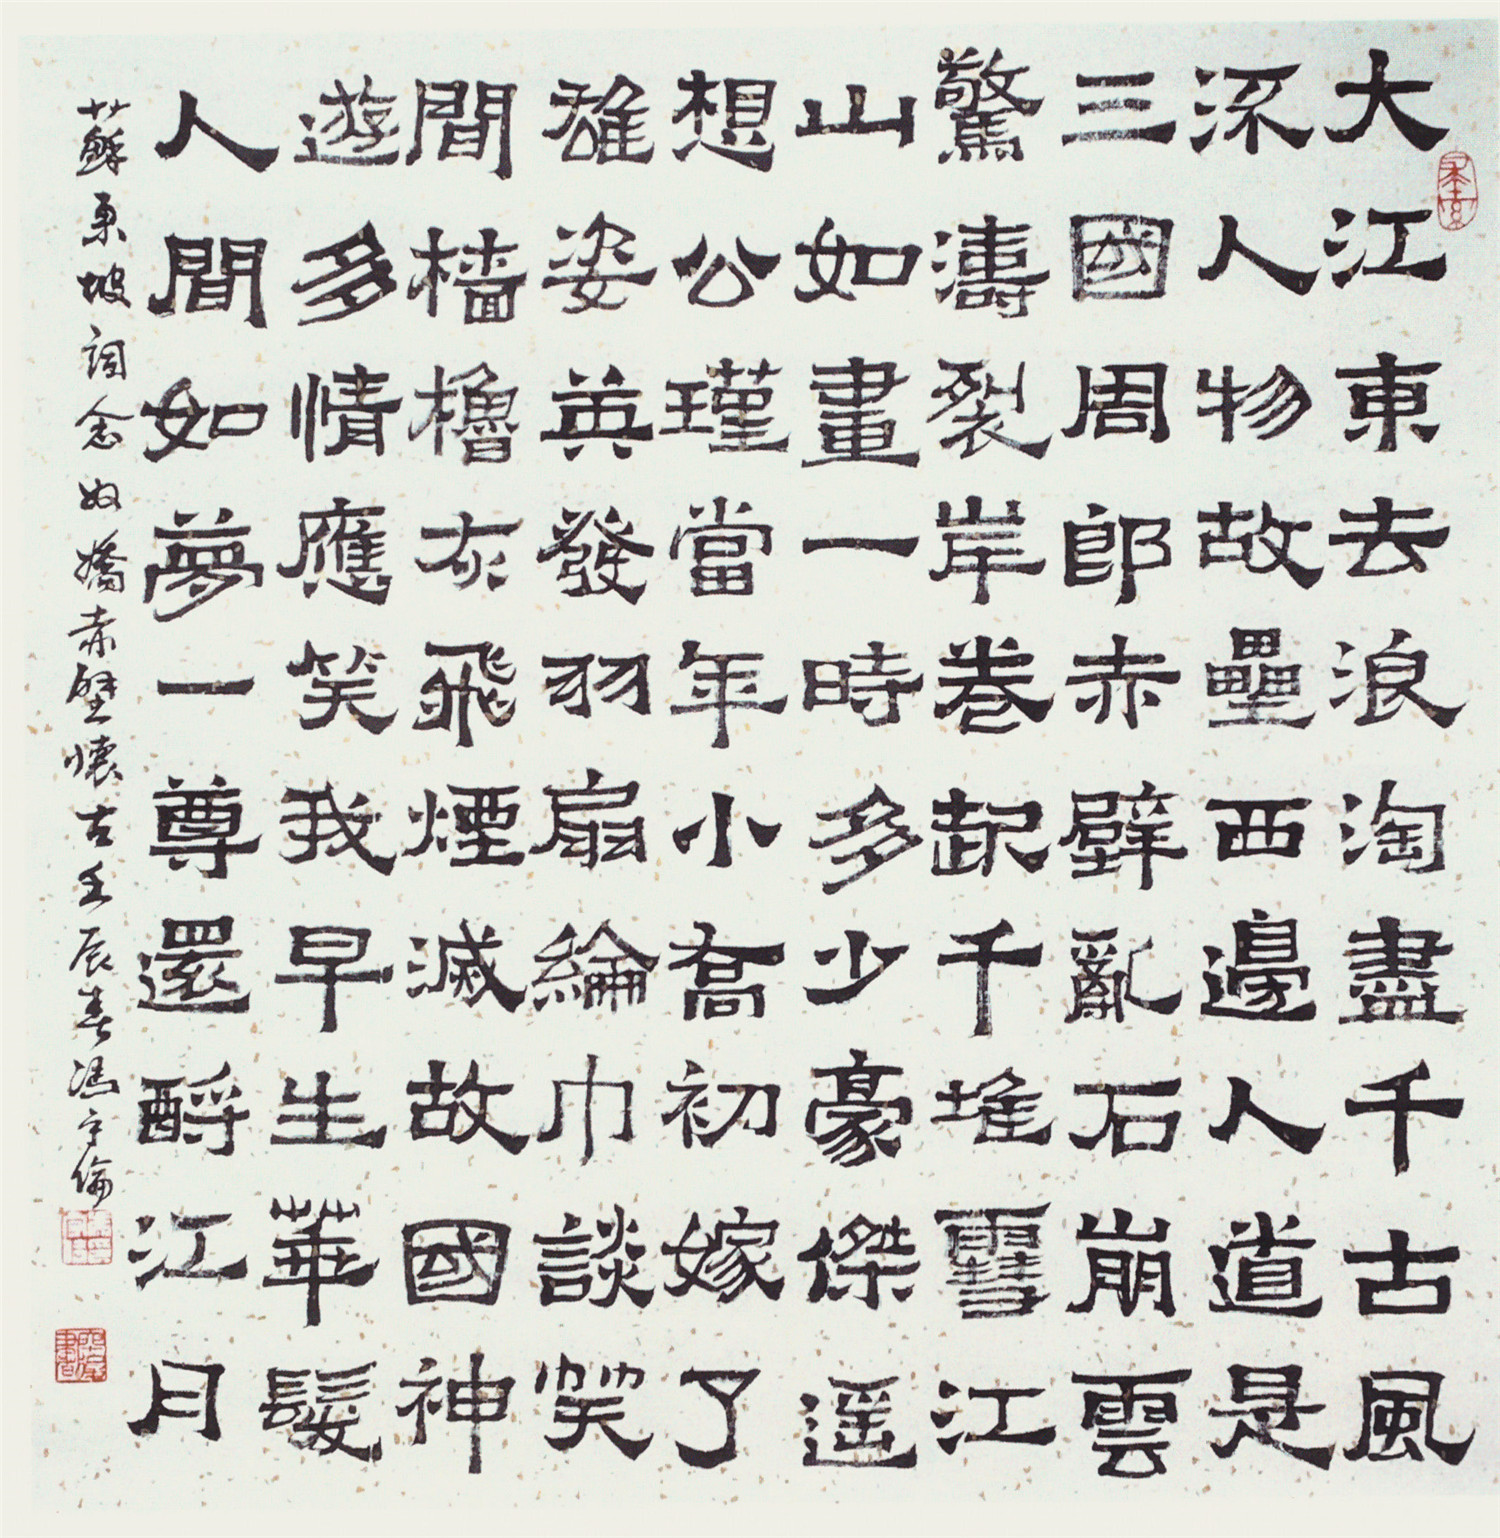 大江東去浪淘盡千古風
流人物故壘西邊人道是
三國周郎赤壁亂石崩雲
驚濤裂岸卷起千堆雪江
山如畫一時多少豪傑遥
想公瑾當年小喬初嫁了
雄姿英發羽扇綸巾談笑
間檣櫓灰飛煙滅故國神
遊多情應笑我早生華髮
人間如夢一尊還酹江月
蘇東坡詞念奴嬌赤壁懷古壬辰春馮宇倫